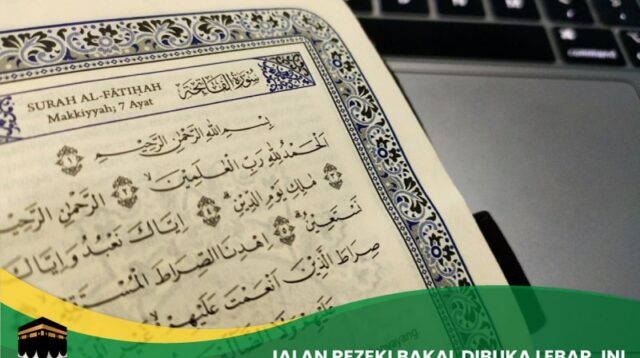 SURAH AL-FĀTIḤAH
Makkiyyah; 7 Ayat
سُوْرَةُ الْفَاتِحَةِ
بِسْمِ اللّٰهِ الرَّحْمٰنِ الرَّحِيْمِ ١
اَلْحَمْدُ لِلّٰهِ رَبِّ الْعٰلَمِيْنَۙ ٢ الرَّحْمٰنِ الرَّحِيْ
٣ مٰلِكِ يَوْمِ الدِّيْنِۗ ٤ اِيَّاكَ نَعْبُدُ وَاِيَّاكَ
نَسْتَعِيْنُۗ ٥ اِهْدِنَا الصِّرَاطَ الْمُسْتَقِيْ
صِرَاطَ الَّذِيْنَ اَنْعَمْتَ عَلَيْهِمْ
عَلَيْهِمْ وَلَا الضَّاۤلِّ
command
JALAN REZEKI BAKAL DIBUKA LEBAR, INI